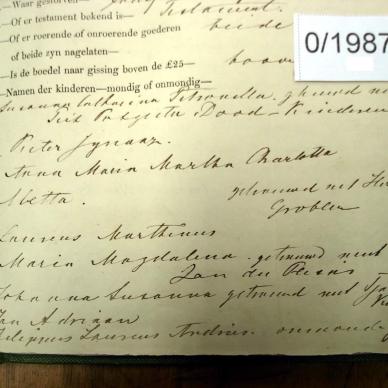 —Waar gestorven—
—Of er testament bekend is— Testament.
0/1987
—Of er roerende of onroerende goederen
of beide zyn nagelaten— beide
—Is de boedel naar gissing boven de £25— boven
—Namen der kinderen—mondig of onmondig—
Susanna Catharina Petronella gehuwd
Dood Kinderen
Pieter
Anna Maria Martha Charlotta
Aletta. getrouwd met
Grobler
Laurens Marthinus
Maria Magdalena getrouwd met
Jan du Plessis
Johanna Susanna getrouwd met
Jan Adriaan
Philippus Laurens Andries onmondig